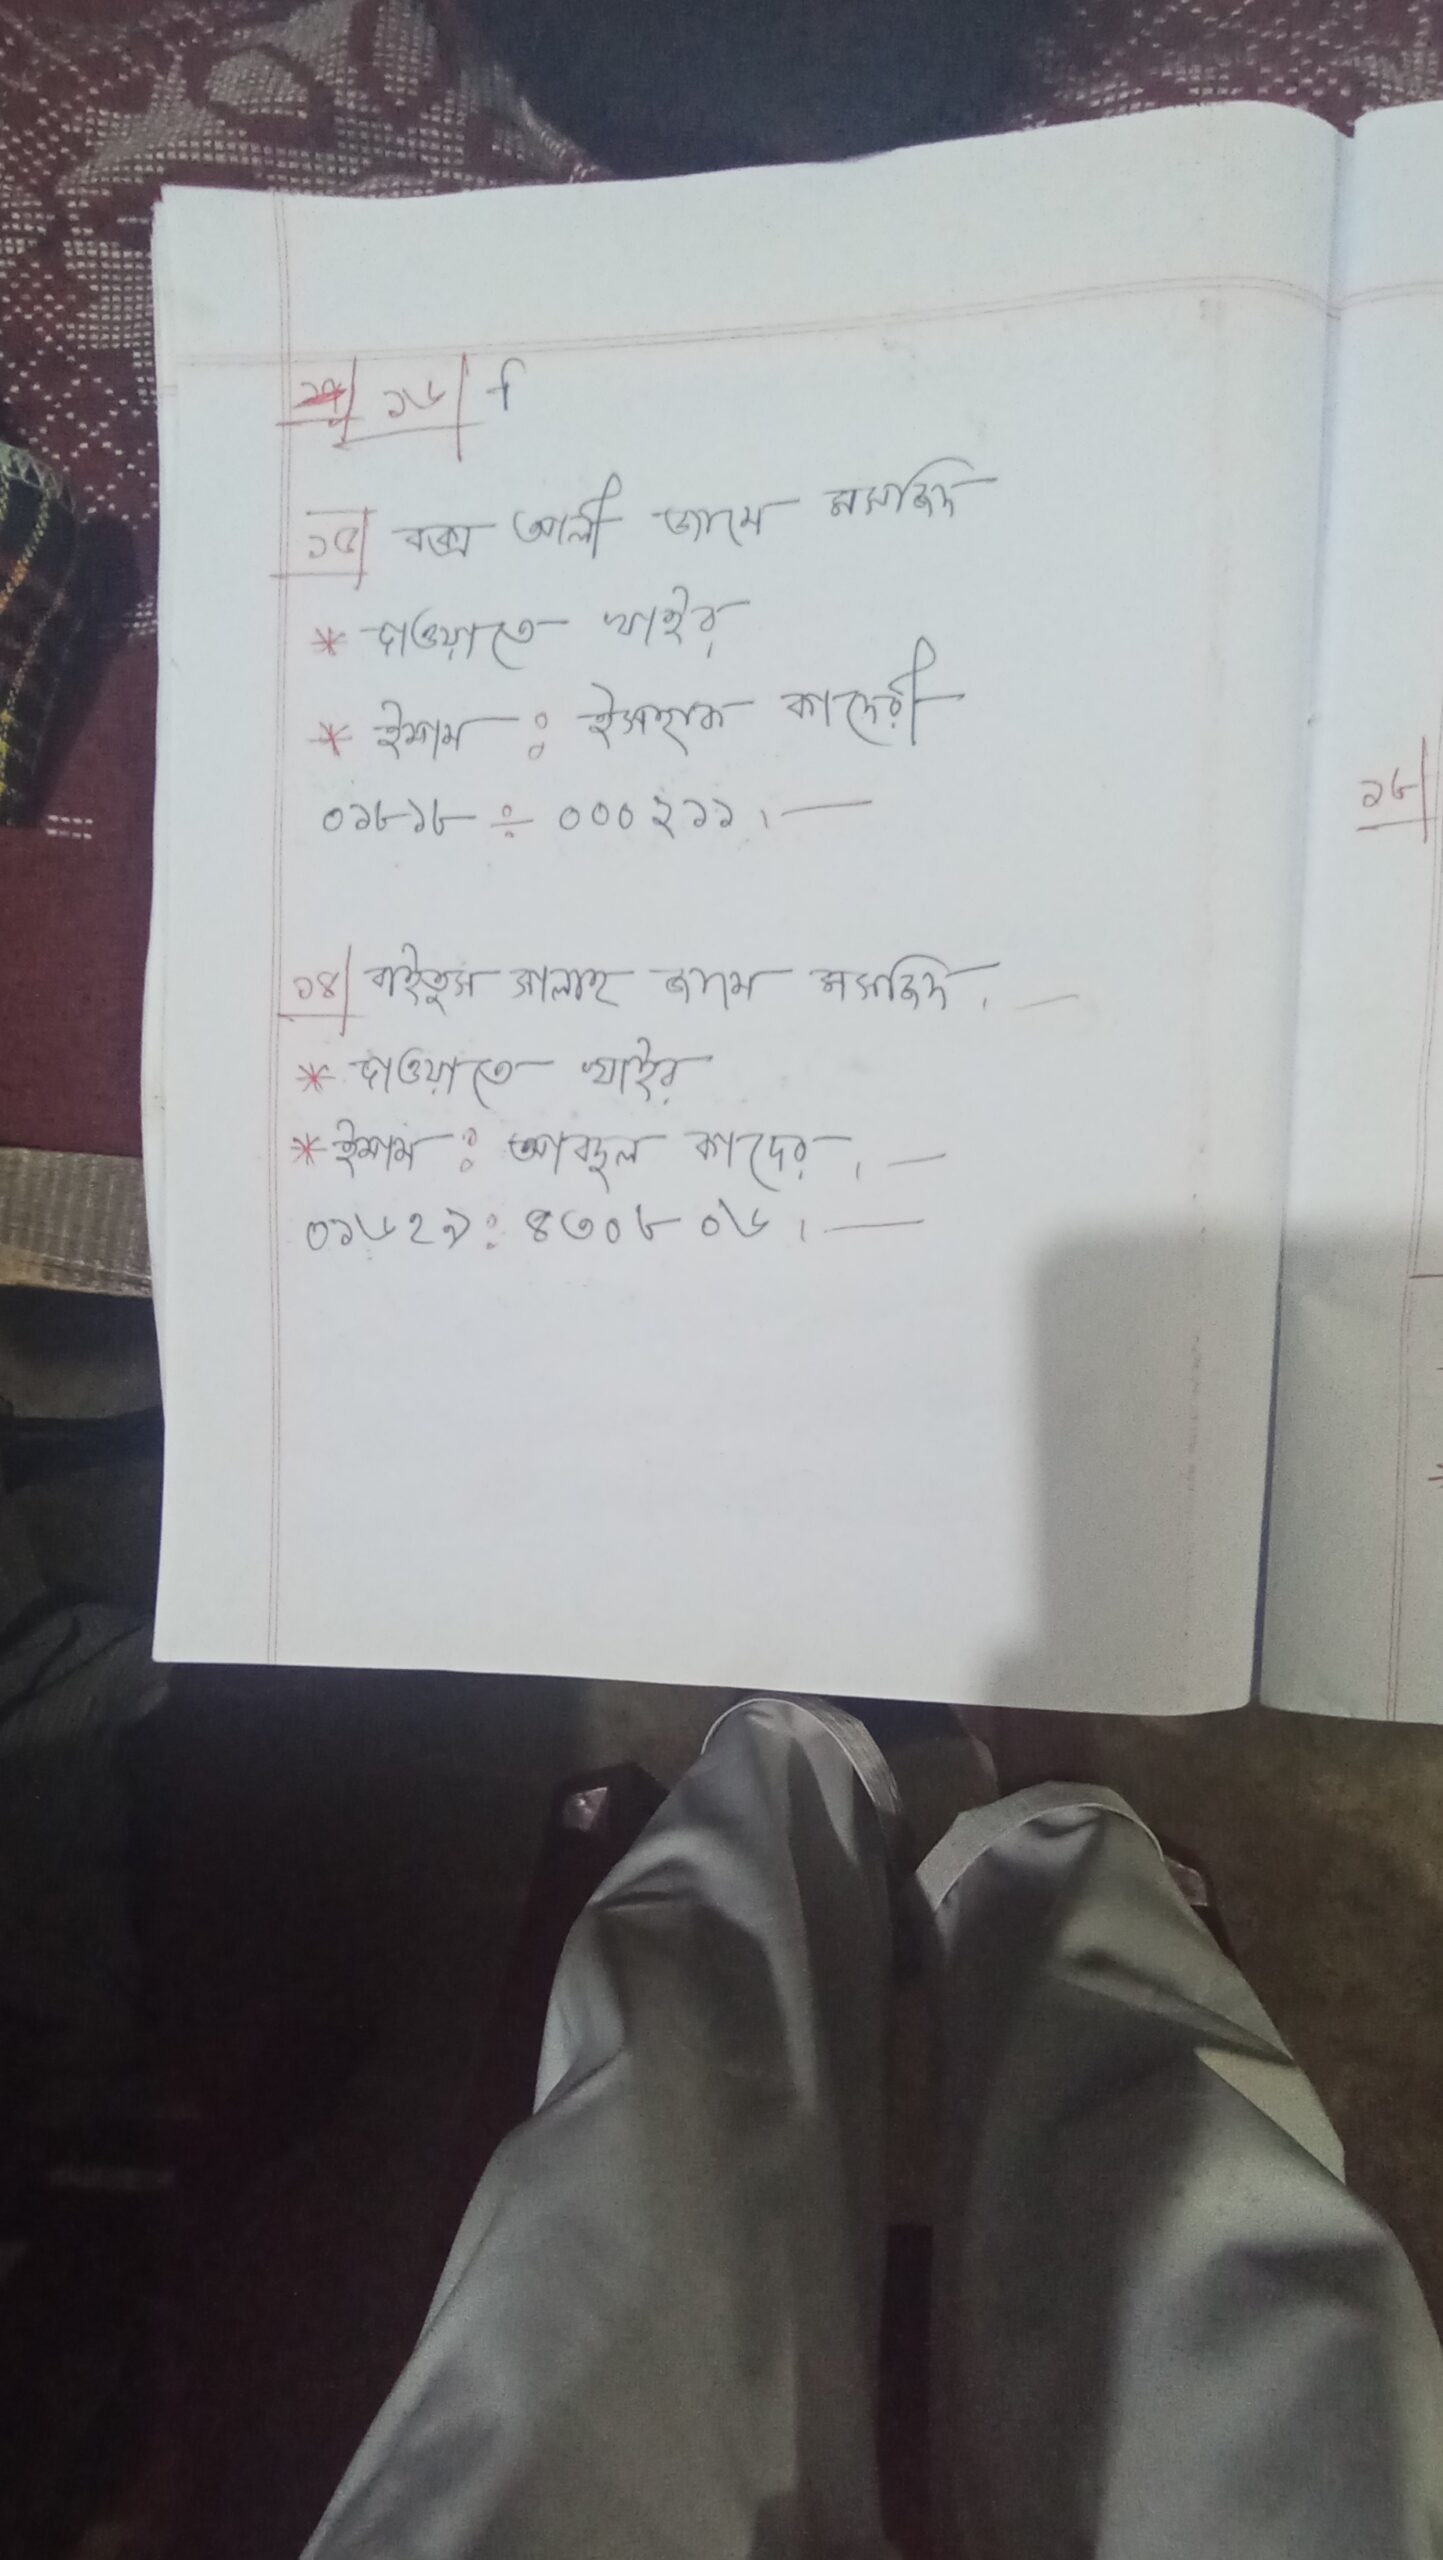 ১৬|
১৫| বক্স আলী জামে মসজিদ
* দাওয়াতে খাইর
* ইমাম : ইসহাক কাদেরী
০১৮১৮ ÷ ০০০২১১।—
১৪| বাইতুস সালাহ জামে মসজিদ।—
* দাওয়াতে খাইর
* ইমাম : আবদুল কাদের।—
০১৬২৯: ৪৩০৮০৬।—
১৮|